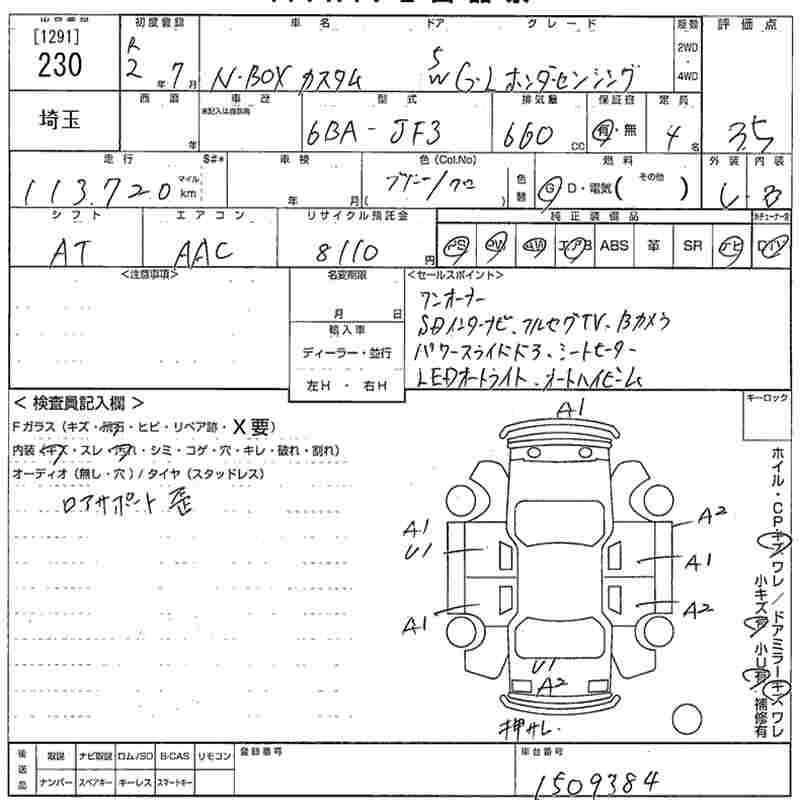 初度登録 車名 ドア グレード 駆動 評価点
[1291]
230
R2年7月 N-BOXカスタム 5W G・Lホンダセンシング 2WD・4WD
埼玉
西暦 年 車歴 未記入は自家用 型式 排気量 保証書 定員
6BA-JF3 660cc 有・無 4名 3.5
走行 S#* 車検 色(Col.No) 色替 燃料 外装 内装
113,720 マイル km 年 月 ( ) G D・電気( その他 )
シフト エアコン リサイクル預託金 純正装備品
AT AAC 8110円 PS PW AW エアB ABS 革 SR ナビ
<注意事項> 名変期限 <セールスポイント>
月 日
ワンオーナー
SDインターナビ、フルセグTV、Bカメラ
輸入車
ディーラー・並行
左H・右H
パワースライドドア、シートヒーター
LEDオートライト、オートハイビーム
<検査員記入欄> キーロック
Fガラス(キズ・飛石・ヒビ・リペア跡・X要)
内装(キズ・スレ・汚れ・シミ・コゲ・穴・キレ・破れ・割れ)
オーディオ(無し・穴)/タイヤ(スタッドレス)
ロアサポート歪
A1
A2
A1
U1
A1
A1
A2
U1
A2
押サレ
ホイル・CPキズワレ/ドアミラーキズワレ
小キズ有 小U有 補修有
後送品 取説 ナビ取説 ロム/SD B-CAS リモコン 登録番号 車台番号
ナンバー スペアキー キーレス スマートキー
1509384